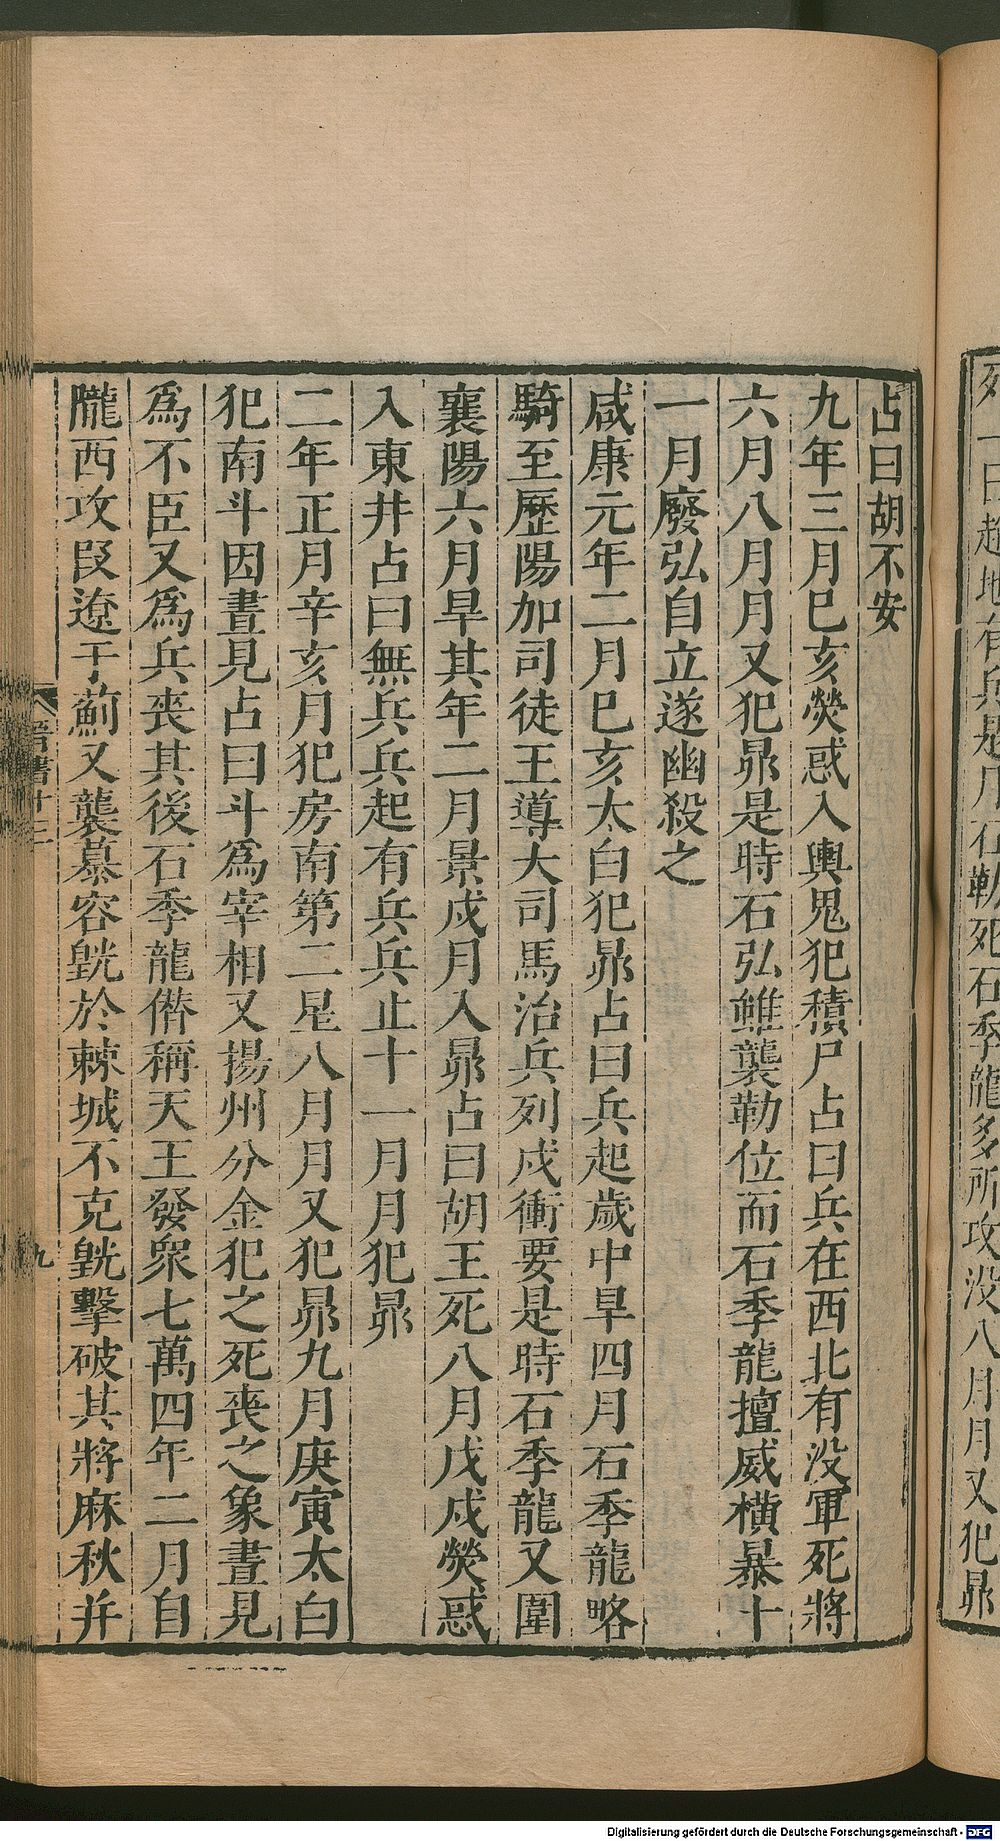 死一曰趙地有兵是月石勒死石季龍多所攻没八月月又犯昴
占曰胡不安
九年三月巳亥熒惑入輿鬼犯積尸占曰兵在西北有没軍死將
六月八月月又犯昴是時石弘雖襲勒位而石季龍擅威橫暴十
一月廢弘自立遂幽殺之
咸康元年二月巳亥太白犯昴占曰兵起歲中旱四月石季龍略
騎至歷陽加司徒王導大司馬治兵列戍衝要是時石季龍又圍
襄陽六月旱其年二月景戍月入昴占曰胡王死八月戊戍熒惑
入東井占曰無兵兵起有兵兵止十一月月犯昴
二年正月辛亥月犯房南第二星八月月又犯昴九月庚寅太白
犯南斗因晝見占曰斗爲宰相又揚州分金犯之死喪之象晝見
爲不臣又爲兵喪其後石季龍僭稱天王發衆七萬四年二月自
隴西攻段遼于薊又襲慕容皝於棘城不克皝擊破其將麻秋并
晉書十三
九
Digitalisierung gefördert durch die Deutsche Forschungsgemeinschaft - DFG